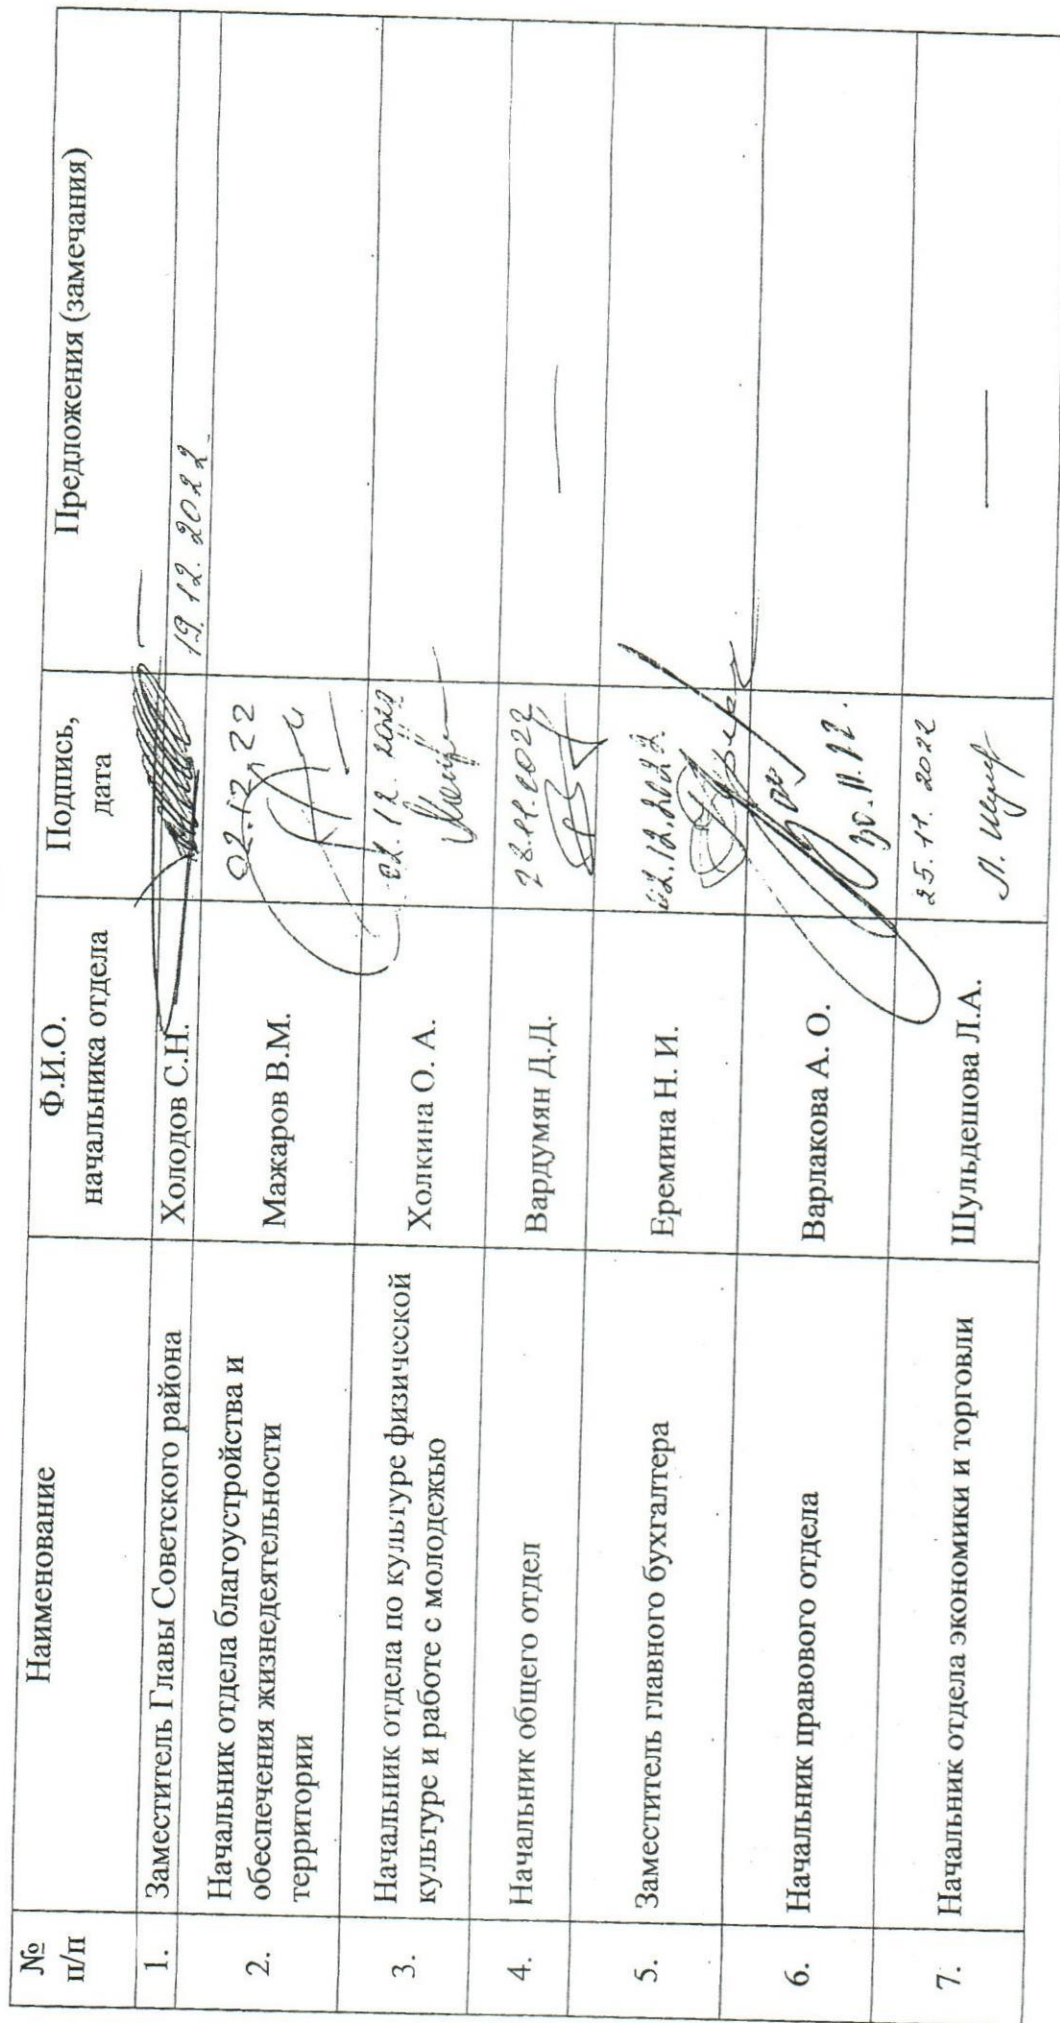 №
п/п
Наименование
Ф.И.О.
начальника отдела
Подпись,
дата
Предложения (замечания)
1.
Заместитель Главы Советского района
Холодов С.Н.
—
19.12.2022
2.
Начальник отдела благоустройства и
обеспечения жизнедеятельности
территории
Мажаров В.М.
02.12.22
3.
Начальник отдела по культуре физической
культуре и работе с молодежью
Холкина О. А.
02.12.2022
4.
Начальник общего отдел
Вардумян Д.Д.
28.11.2022
—
5.
Заместитель главного бухгалтера
Еремина Н. И.
02.12.2022
6.
Начальник правового отдела
Варлакова А. О.
30.11.22.
7.
Начальник отдела экономики и торговли
Шульдешова Л.А.
25.11.2022
—